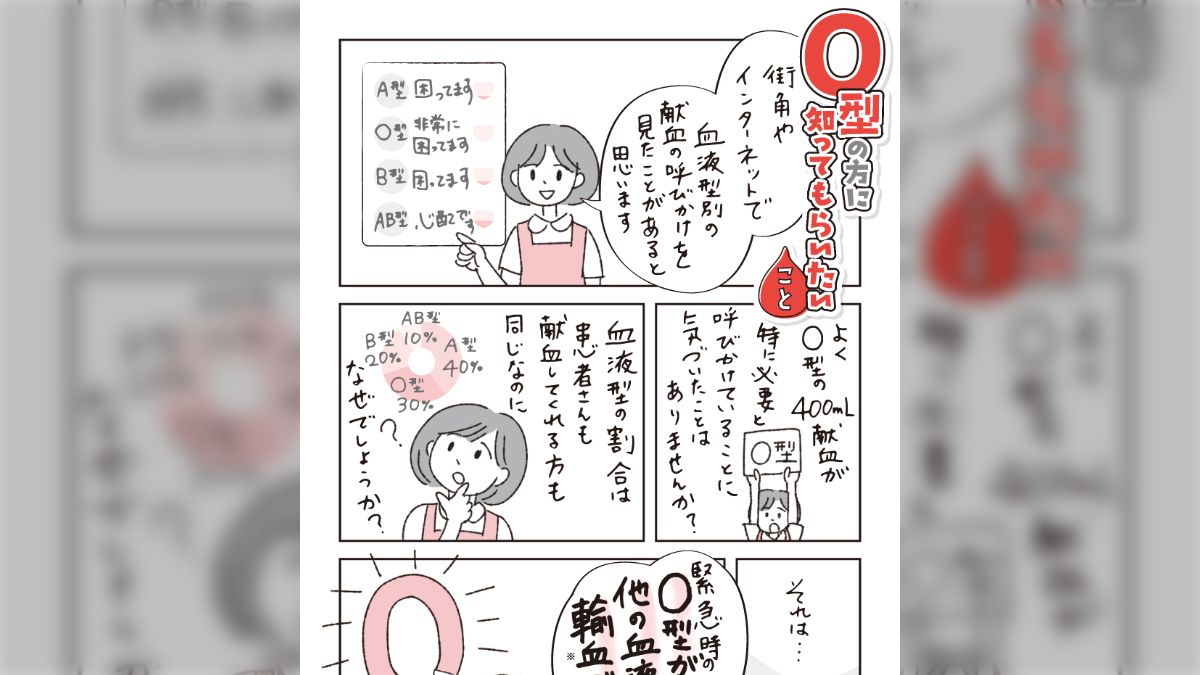 O型の方に
知ってもらいたい
こと
街角や
インターネットで
血液型別の
献血の呼びかけを
見たことがあると
思います
A型 困ってます
O型 非常に
困ってます
B型 困ってます
AB型 心配です
よく
O型の
400mL献血が
特に必要と
呼びかけていることに
気づいたことは
ありませんか?
O型
血液型の割合は
患者さんも
献血してくれる方も
同じなのに
なぜでしょうか?
?
AB型
10%
A型
40%
B型
20%
O型
30%
それは…
緊急時の
O型が
他の血液
輸血
※
O